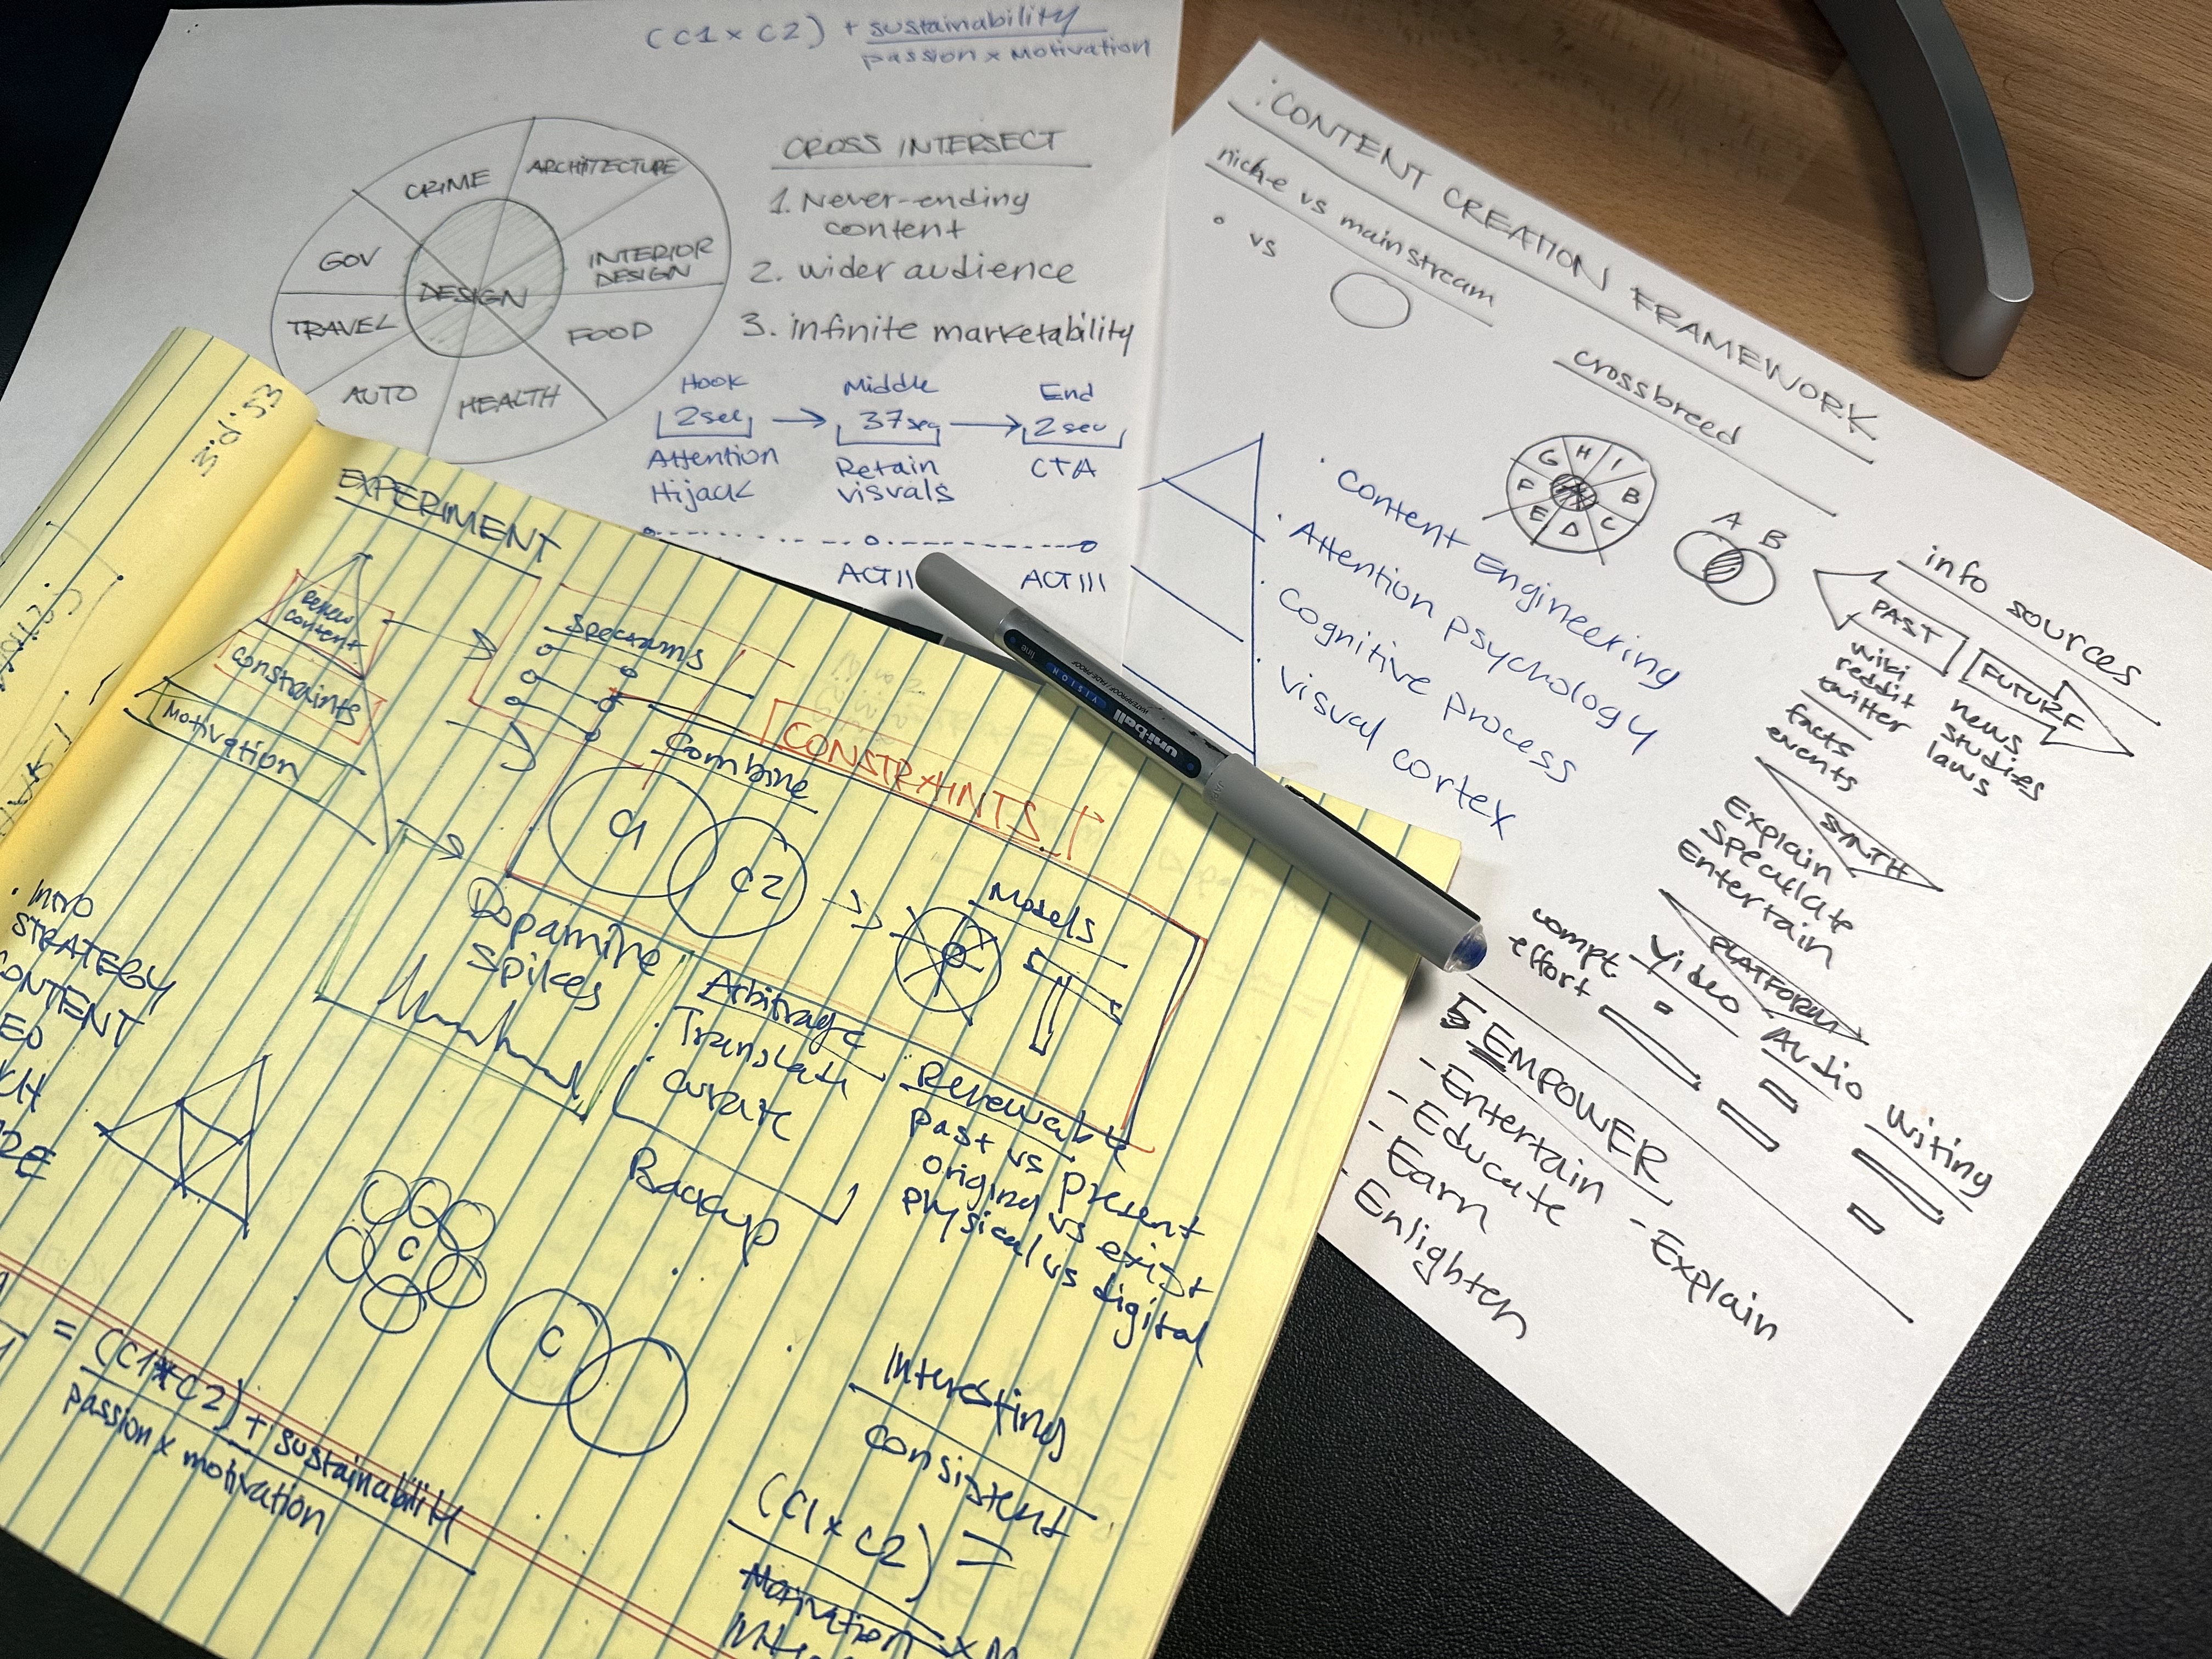 (C1 x C2) + sustainability
passion x motivation
CRIME
ARCHITECTURE
GOV
INTERIOR
DESIGN
DESIGN
TRAVEL
FOOD
AUTO
HEALTH
CROSS INTERSECT
1. Never-ending
content
2. wider audience
3. infinite marketability
Hook
Middle
End
2sec
37sec
2sec
Attention
Hijack
Retain
visuals
CTA
ACT II
ACT III
CONTENT CREATION FRAMEWORK
niche vs mainstream
vs
crossbreed
G H I
F B
E D C
A B
· Content Engineering
· Attention psychology
· Cognitive process
· Visual cortex
info sources
PAST
FUTURE
wiki
reddit
twitter
facts
events
news
studies
laws
SYNTH
Explain
Speculate
Entertain
PLATFORM
compt.
effort
Video
Audio
Writing
5 EMPOWER
- Entertain
- Educate
- Earn
- Enlighten
- Explain
uni-ball
VISION
EXPERIMENT
content
constraints
Motivation
Combine
CONSTRAINTS
C1
C2
Models
Dopamine
Spikes
Arbitrage
· Translate
· Curate
Backup
Renewable
past vs present
original vs exist
physical vs digital
· INTRO
STRATEGY
CONTENT
C
C
= (C1*C2) + sustainability
passion x motivation
Interesting
consistent
(C1 x C2) =
Motivation x